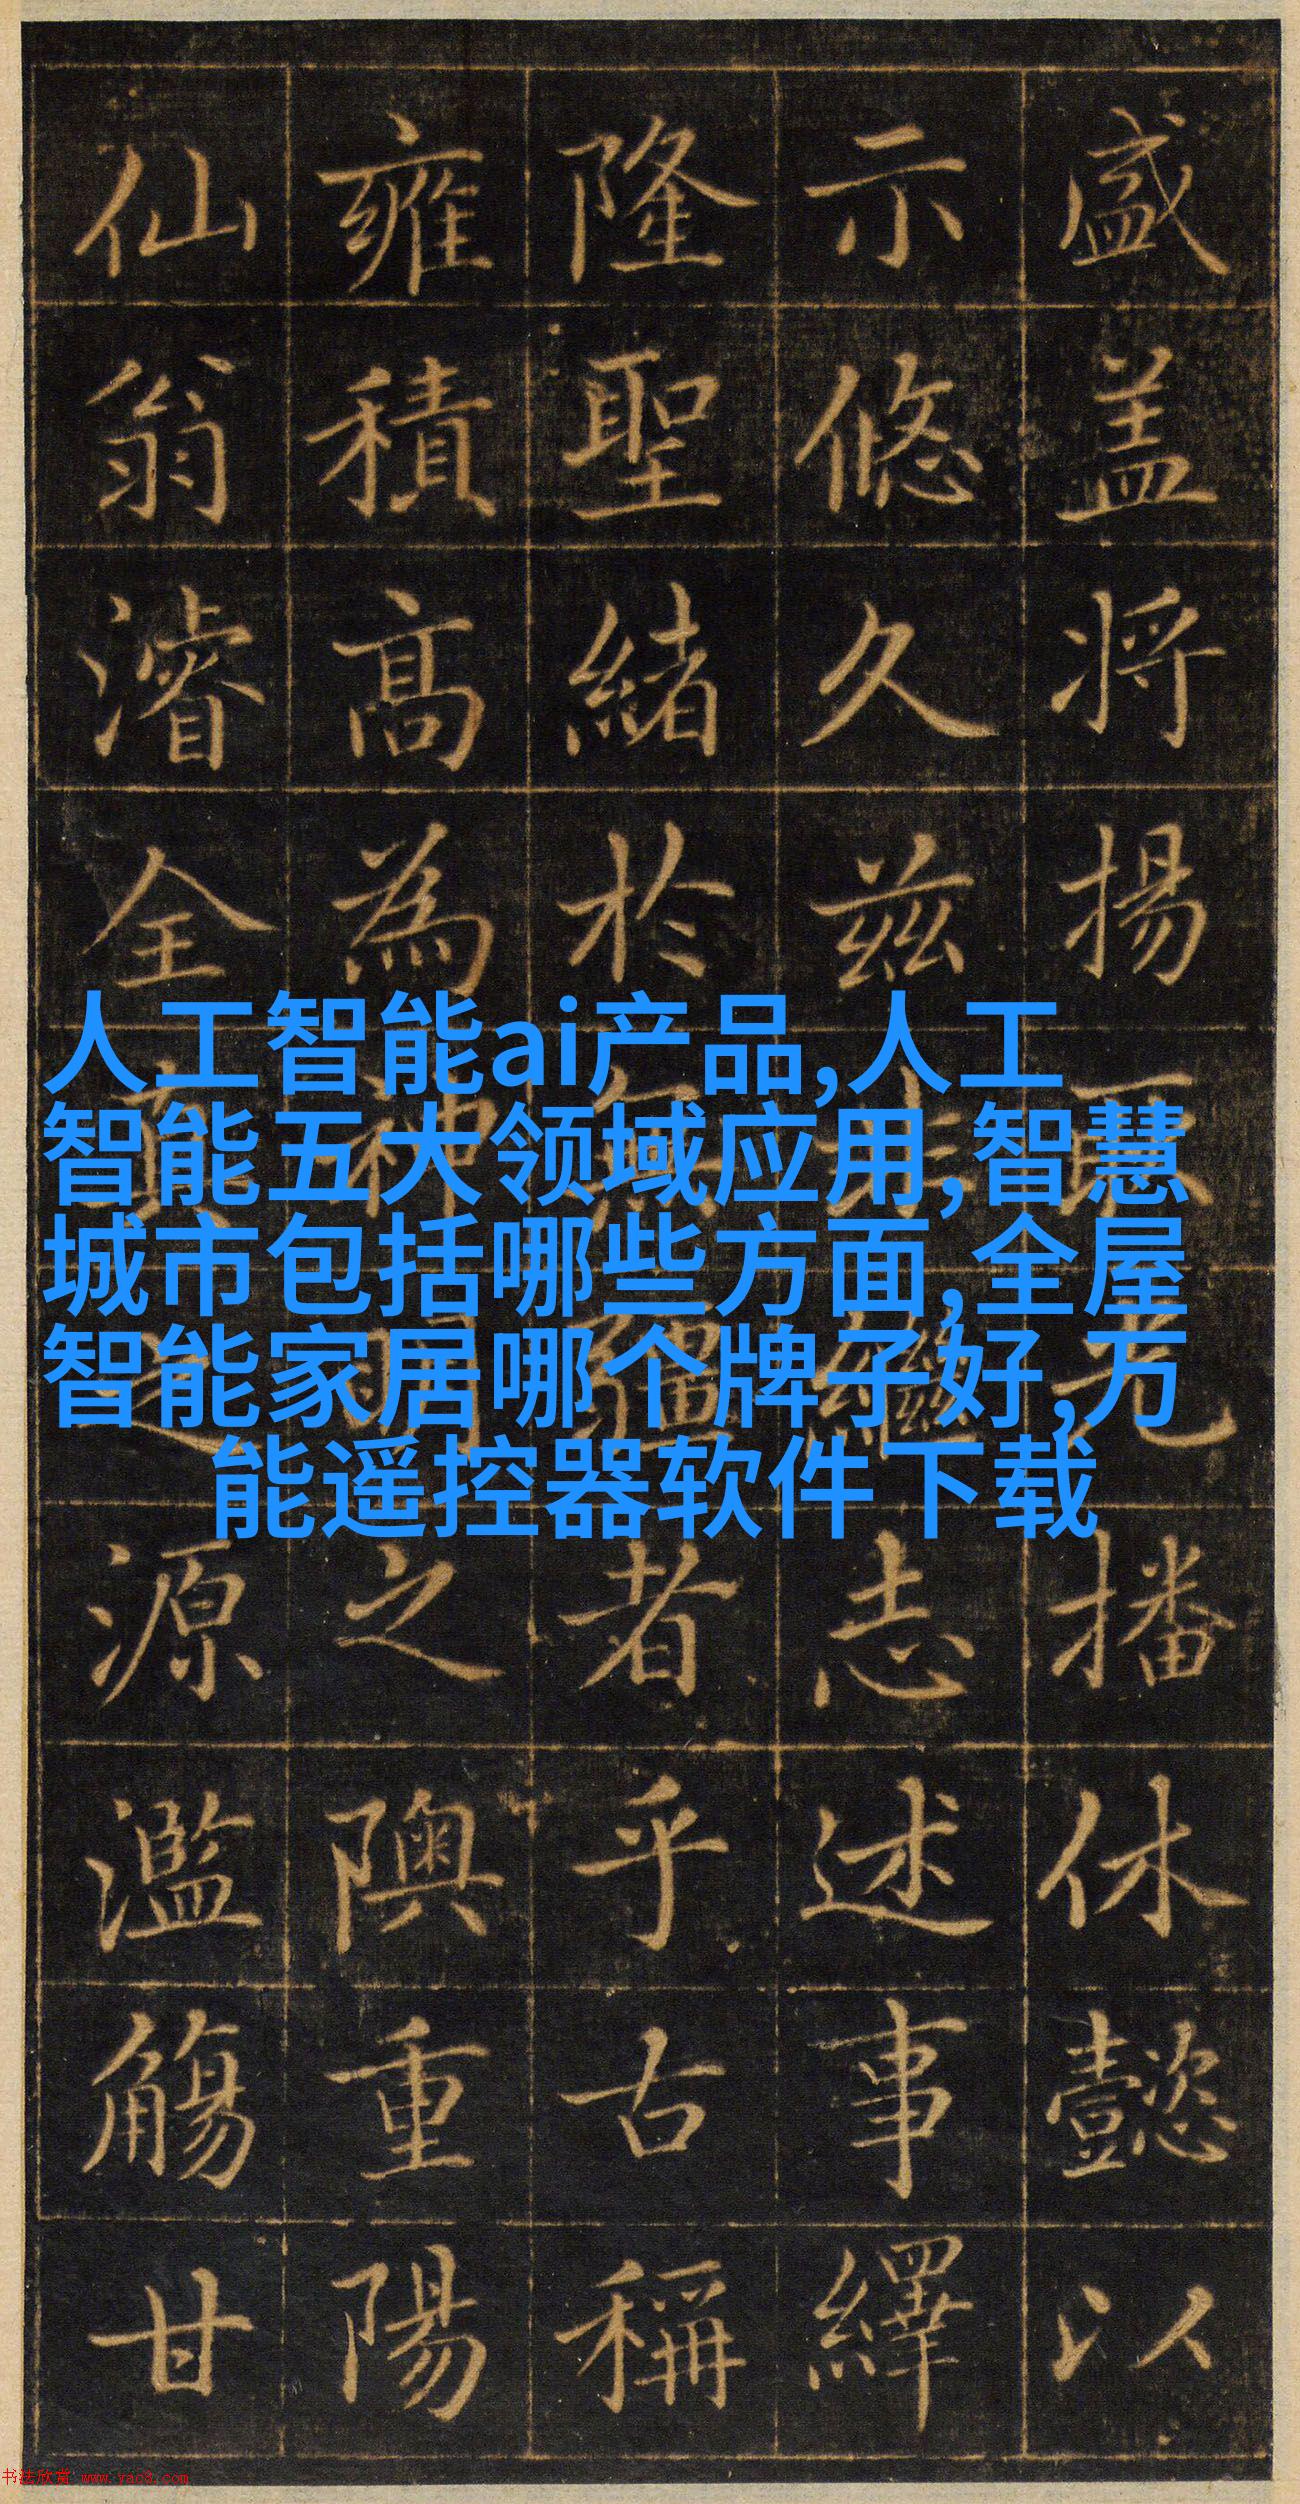 盛盖将揚光播休懿以
示悠久茲非繼志述事繹
隆聖緒於無疆者乎古稱
雍積高為神明之隩重陽
仙翁濬全真之源濫觴甘
人工智能ai产品,人工
智能五大领域应用,智慧
城市包括哪些方面,全屋
智能家居哪个牌子好,万
能遥控器软件下载
书法欣赏 www.yac8.com